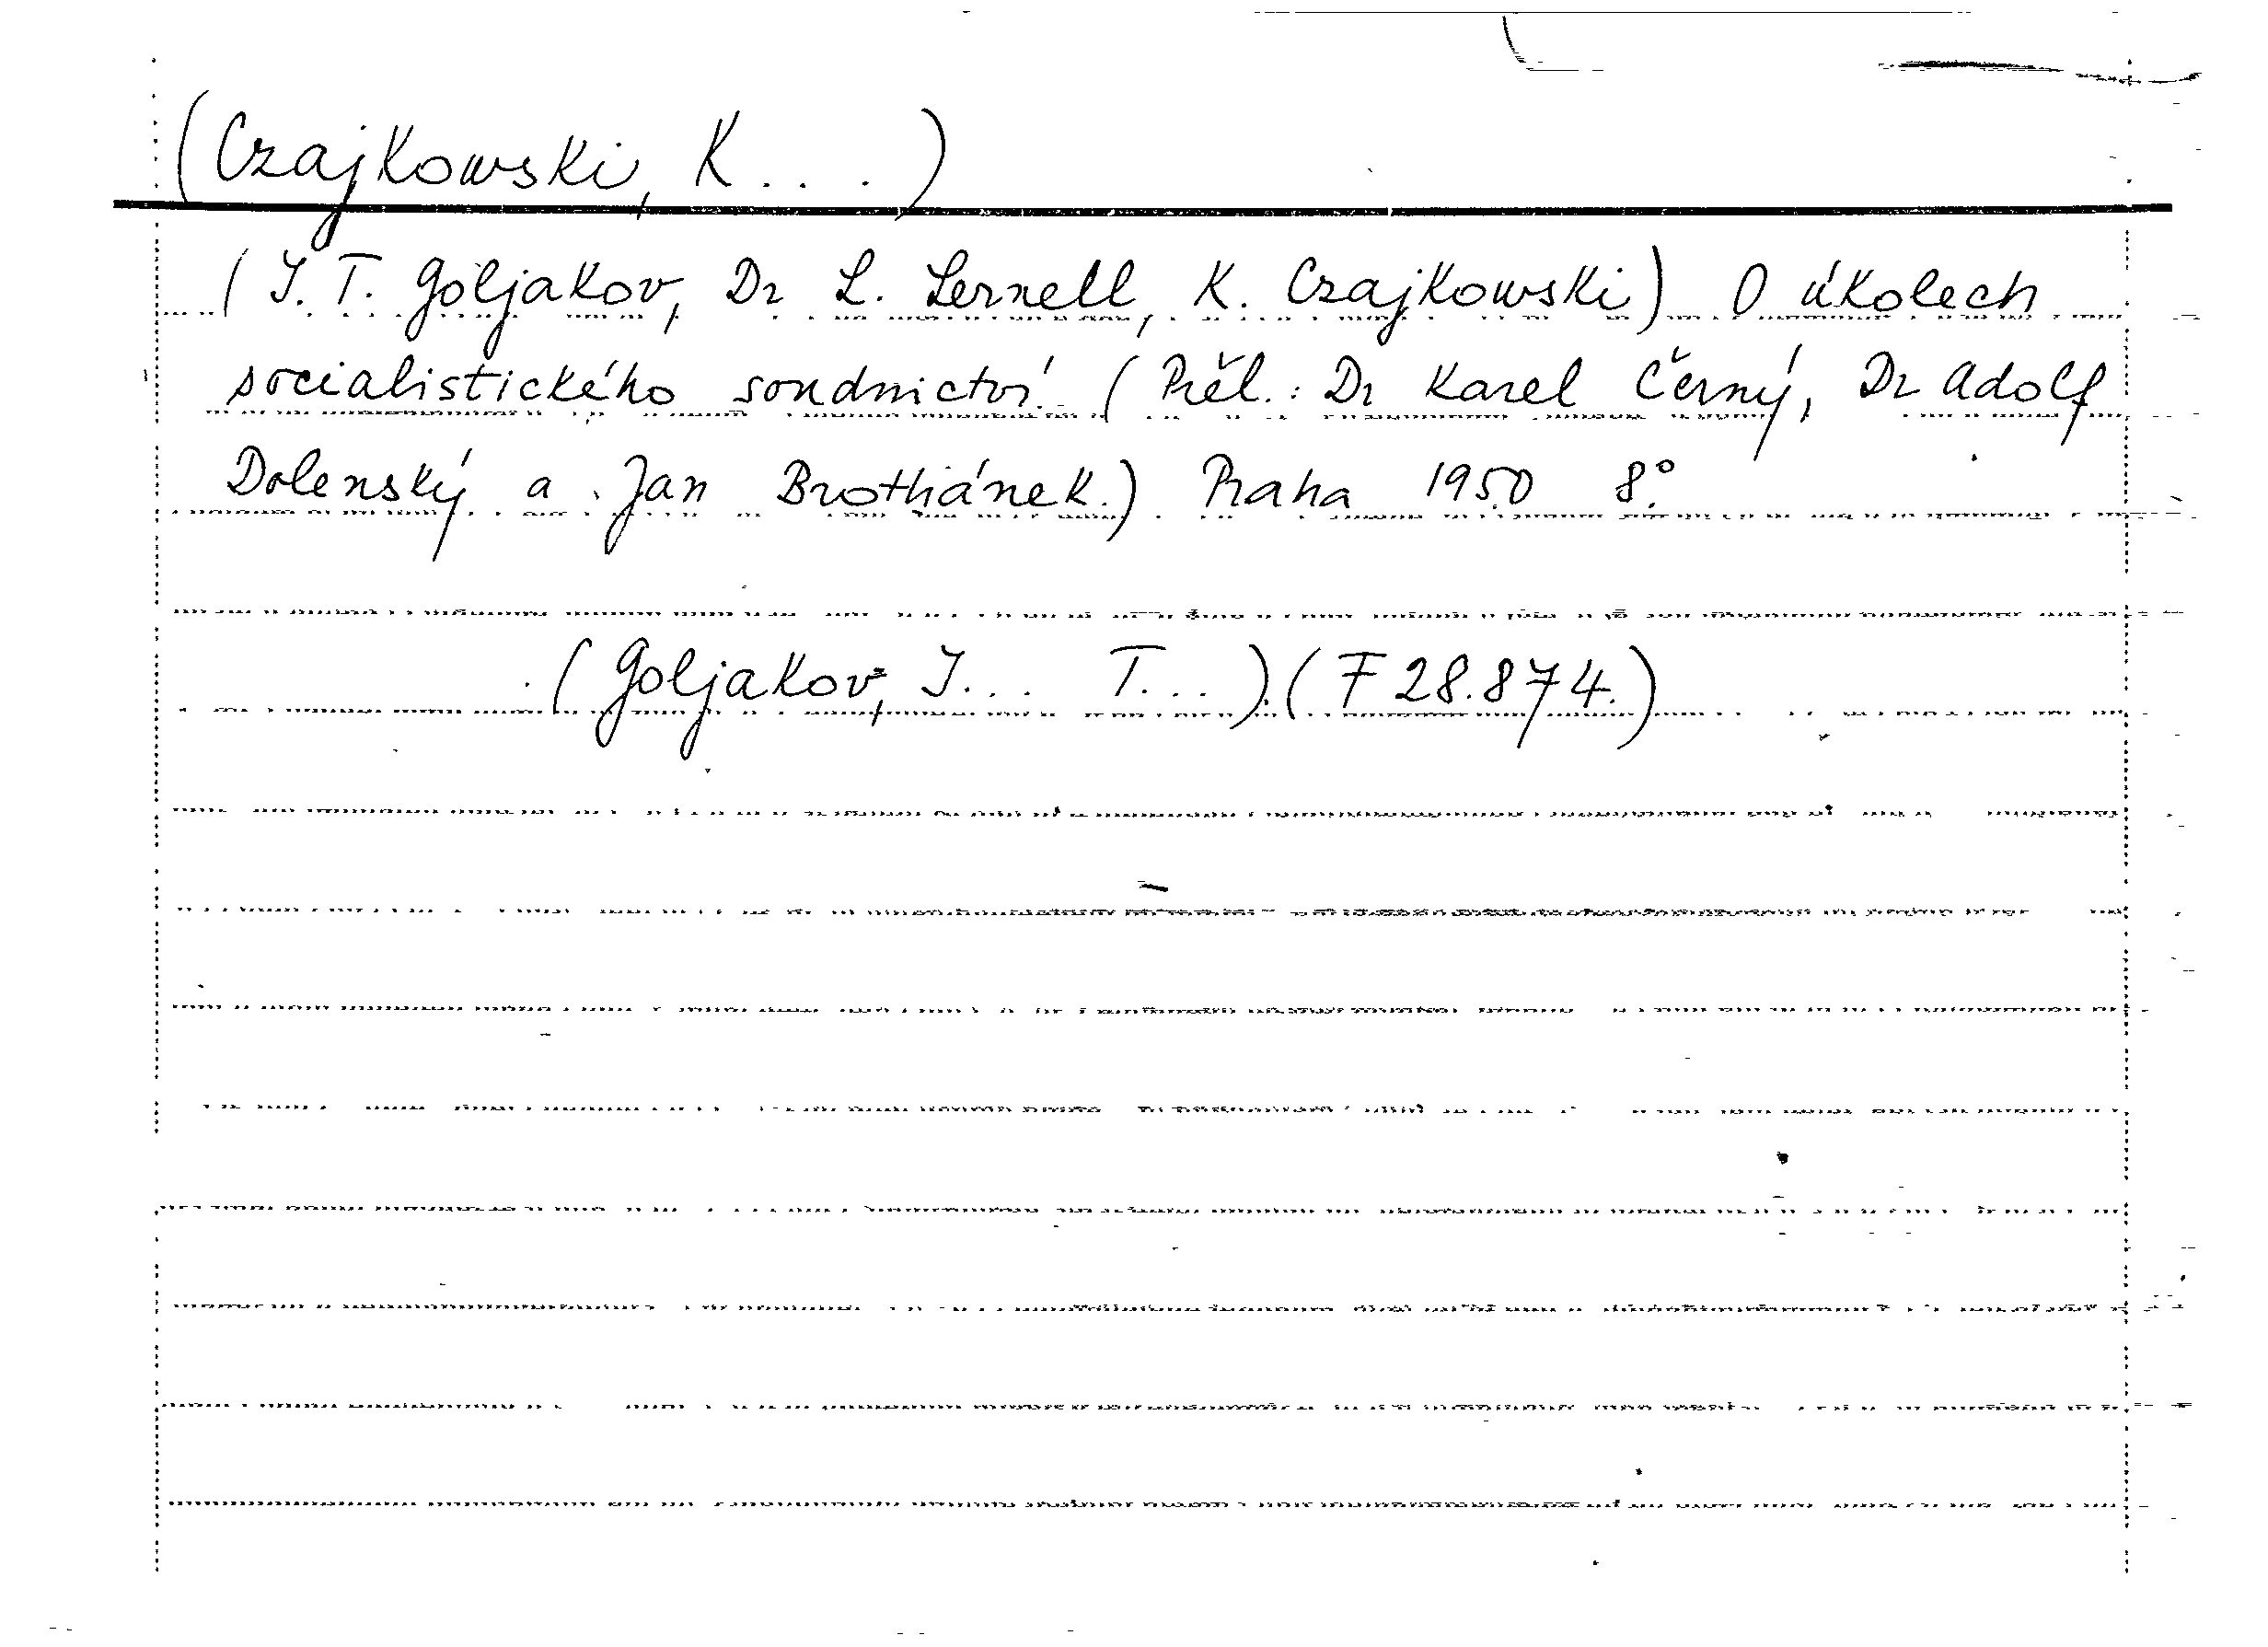 (Czajkowski, K...)
(I. T. Goljakov, Dr L. Lernell, K. Czajkowski) O úkolech
socialistického soudnictví. (Přel.: Dr Karel Černý, Dr Adolf
Dolenský a Jan Brothánek.) Praha 1950 8°.
(Goljakov, I... T...) (F 28.874.)